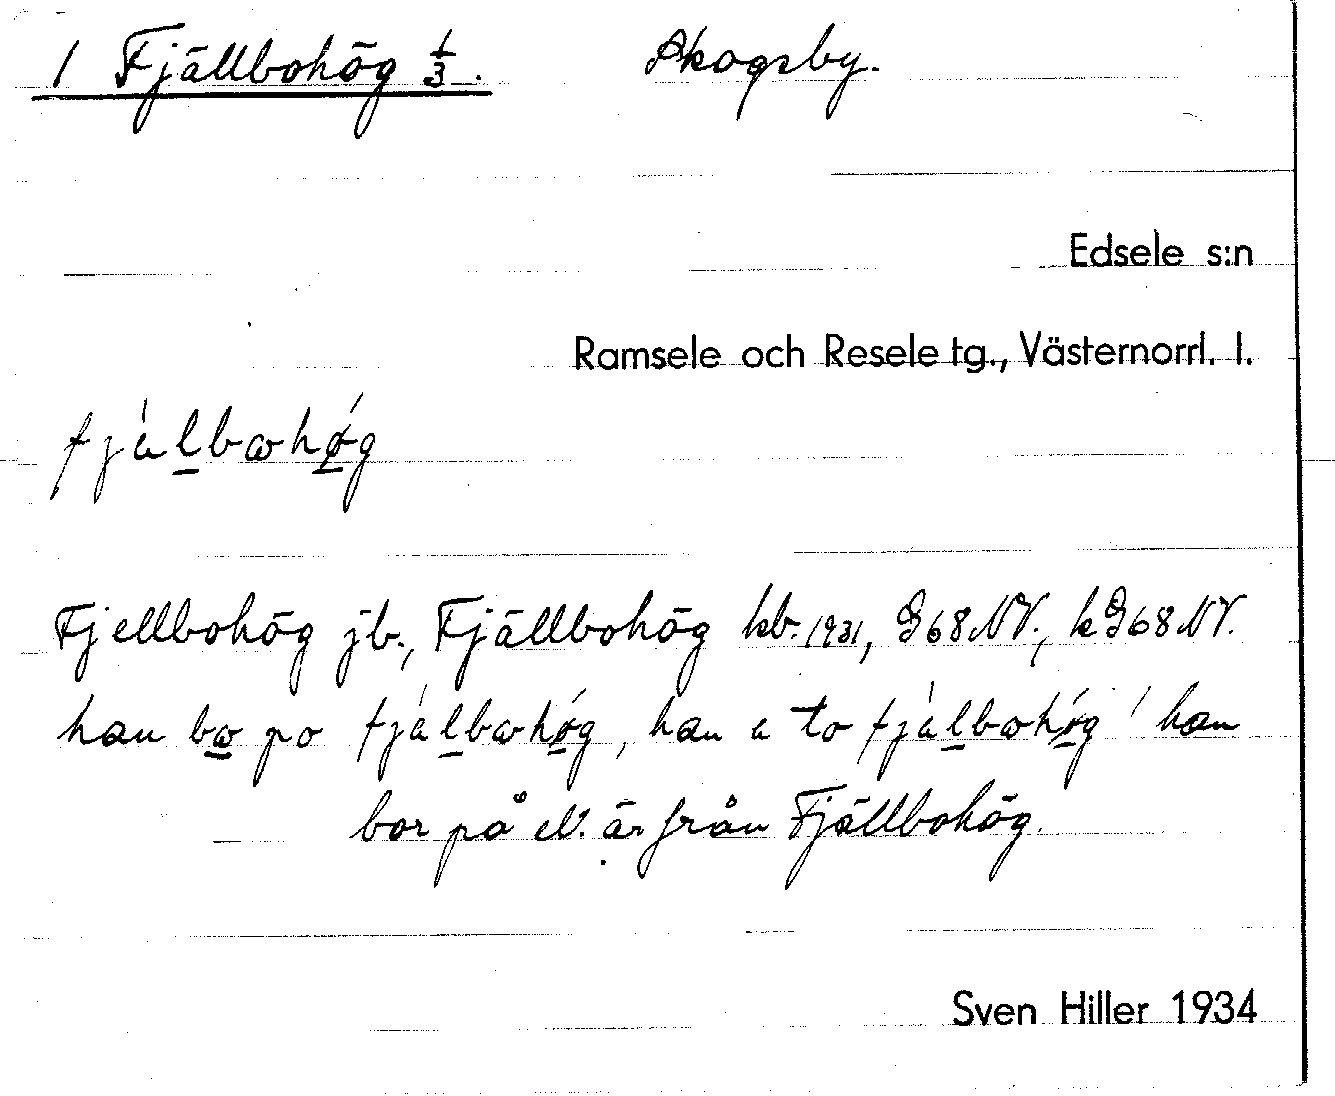 1 Fjällbohög 1/3. Skogsby.
Edsele s:n
Ramsele och Resele tg., Västernorrl. l.
fjálbωhǿg
Fjellbohög jb., Fjällbohög kb. 1931, G68NV., kG68NV.
han bω po fjálbωhǿg, han a to fjálbωhǿg ' han
bor på el. är från Fjällbohög.
Sven Hiller 1934